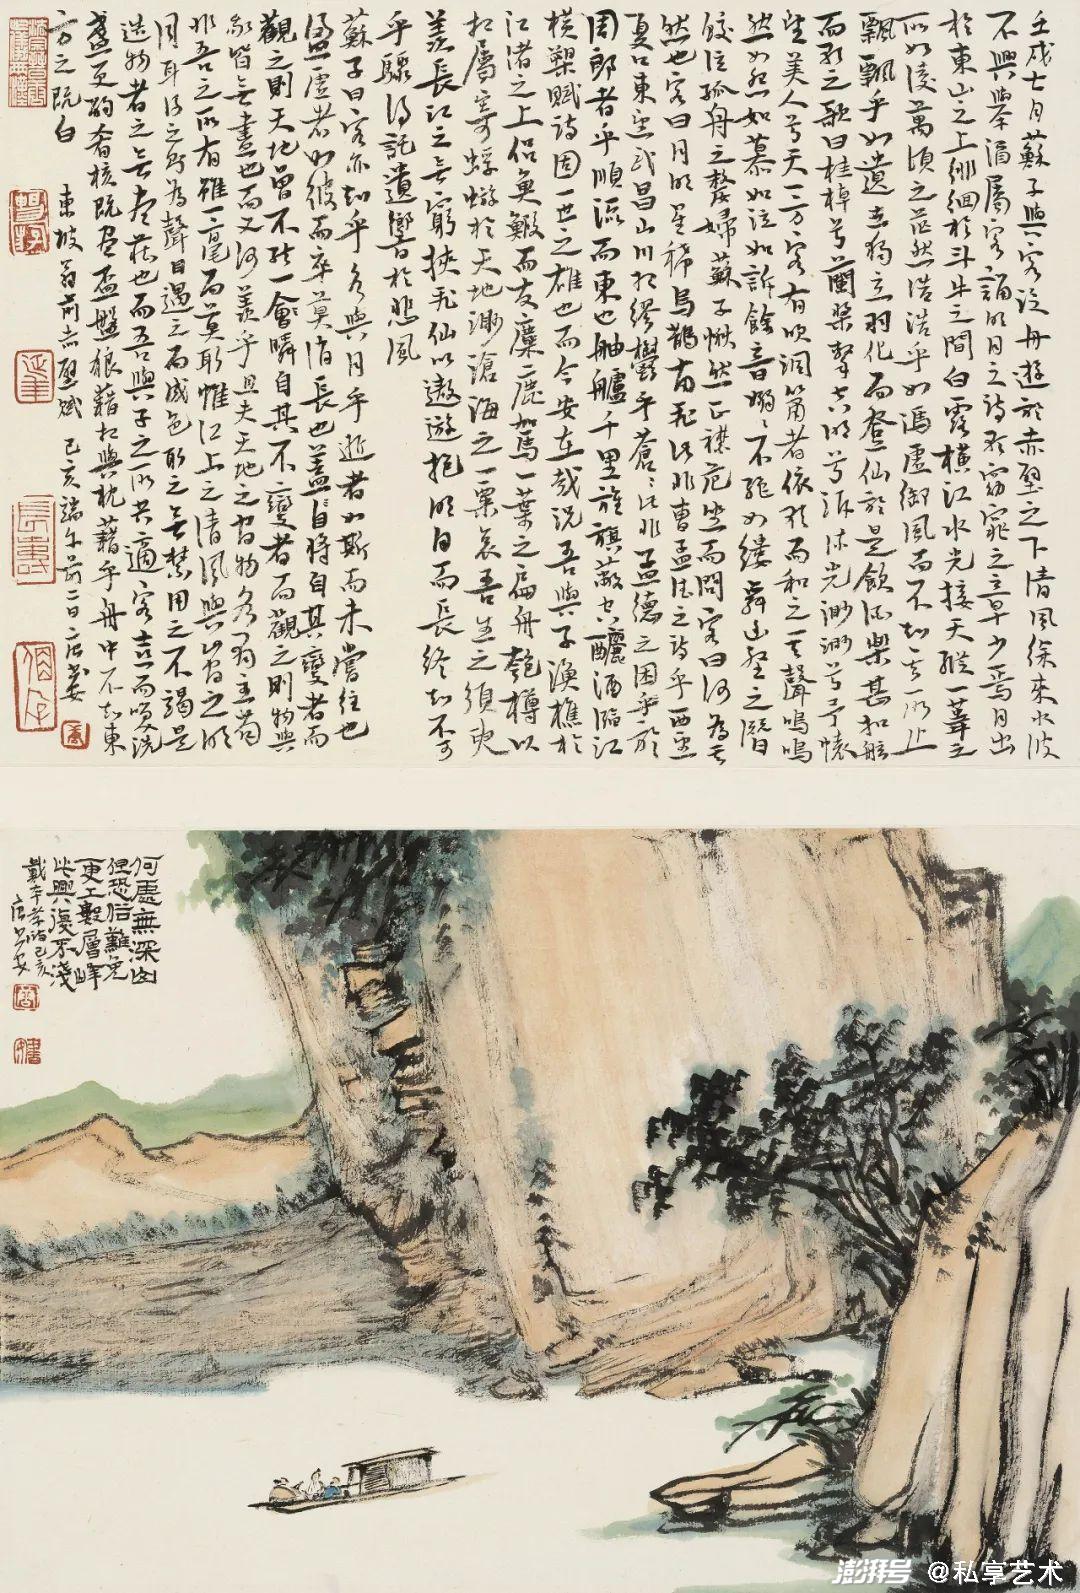 壬戌七月蘇子與客泛舟遊於赤壁之下清風徐來水波
不興舉酒屬客誦明月之詩歌窈窕之章少焉月出
於東山之上徘徊於斗牛之間白露橫江水光接天縱一葦之
所如凌萬頃之茫然浩浩乎如馮虛御風而不知其所止
飄飄乎如遺世獨立羽化而登仙於是飲酒樂甚扣舷
而歌之歌曰桂棹兮蘭槳擊空明兮泝流光渺渺兮予懷
望美人兮天一方客有吹洞簫者依歌而和之其聲嗚嗚
然如怨如慕如泣如訴餘音嫋嫋不絕如縷舞幽壑之潛
蛟泣孤舟之嫠婦蘇子愀然正襟危坐而問客曰何為其
然也客曰月明星稀烏鵲南飛此非曹孟德之詩乎西望
夏口東望武昌山川相繆鬱乎蒼蒼此非孟德之困乎於
周郎者乎順流而東也舳艫千里旌旗蔽空釃酒臨江
橫槊賦詩固一世之雄也而今安在哉況吾與子漁樵於
江渚之上侶魚鰕而友麋鹿駕一葉之扁舟匏樽以
相屬寄蜉蝣於天地渺滄海之一粟哀吾生之須臾
羨長江之無窮挾飛仙以遨遊抱明月而長終知不可
乎驟得託遺響於悲風
蘇子曰客亦知乎水與月乎逝者如斯而未嘗往也
盈虛者如彼而卒莫消長也蓋自將自其變者而
觀之則天地曾不能一會瞬自其不變者而觀之則物與
我皆無盡也而又何羨乎且夫天地之間物各有主苟
非吾之所有雖一毫而莫取惟江上之清風與山間之明
月耳得之而為聲目遇之而成色取之無禁用之不竭是
造物者之無盡藏也而吾與子之所共適客喜而笑洗
盞更酌肴核既盡盃盤狼藉相與枕藉乎舟中不知東
方之既白 東坡翁前赤壁賦 己亥端午前二日唐書安
何處無深山
但恐俗難免
更工數層峰
此興復不淺
戴本孝詩己亥
唐書安
澎湃号 @私享艺术